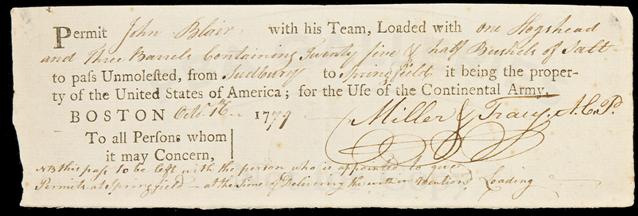 Permit John Blair with his Team, Loaded with one Hogshead
and three Barrels Containing Twenty five & half Bushels of Salt
to pass Unmolested, from Sudbury to Springfield it being the proper-
ty of the United States of America; for the Use of the Continental Army.
BOSTON Octr. 16 1779 Miller & Tracy A.C.P.
To all Persons whom
it may Concern,
NB this pass to be left with the person who is appointed to give
Permits at Springfield at the time of Delivering the within mention'd Loading